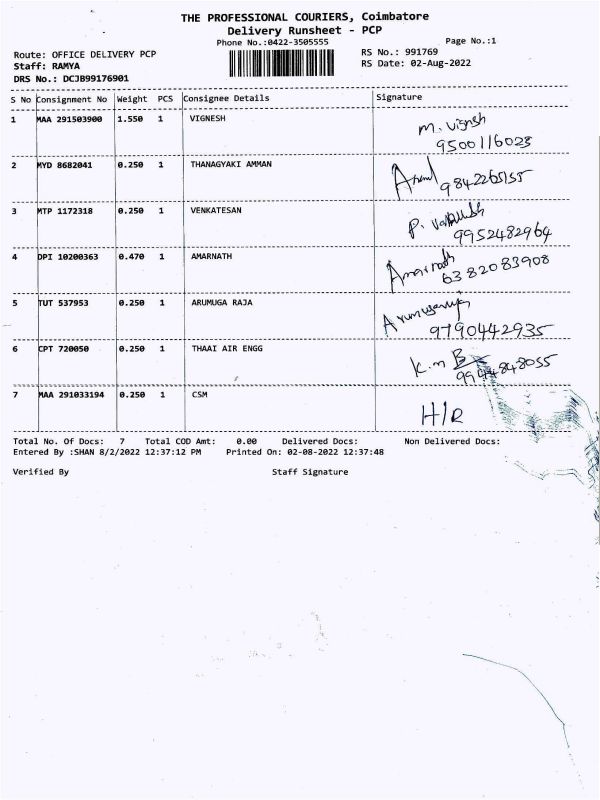 THE PROFESSIONAL COURIERS, Coimbatore
Delivery Runsheet - PCP
Phone No.:0422-3505555
Page No.:1
Route: OFFICE DELIVERY PCP
RS No.: 991769
Staff: RAMYA
RS Date: 02-Aug-2022
DRS No.: DCJB99176901
S No Consignment No Weight PCS Consignee Details Signature
1 MAA 291503900 1.550 1 VIGNESH M. Vignesh
9500116023
2 MYD 8682041 0.250 1 THANAGYAKI AMMAN
9842265155
3 MTP 1172318 0.250 1 VENKATESAN P.
9952482964
4 DPI 10200363 0.470 1 AMARNATH Amarnath
6382083908
5 TUT 537953 0.250 1 ARUMUGA RAJA
9790442935
6 CPT 720050 0.250 1 THAAI AIR ENGG K.m
9944848055
7 MAA 291033194 0.250 1 CSM H/R
Total No. Of Docs: 7 Total COD Amt: 0.00 Delivered Docs: Non Delivered Docs:
Entered By :SHAN 8/2/2022 12:37:12 PM Printed On: 02-08-2022 12:37:48
Verified By Staff Signature